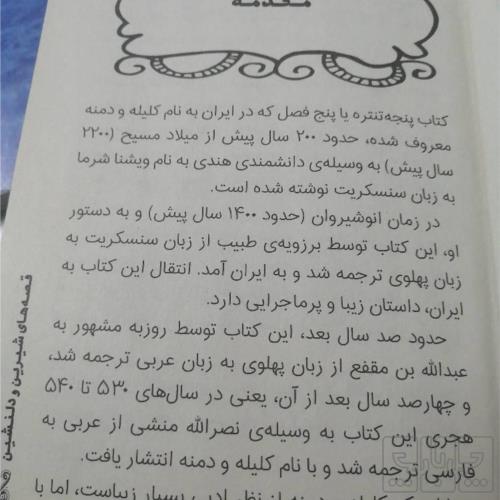 مقدمه
کتاب پنجه‌تنتره یا پنج فصل که در ایران به نام کلیله و دمنه
معروف شده، حدود ۲۰۰ سال پیش از میلاد مسیح (۲۲۰۰
سال پیش) به وسیله‌ی دانشمندی هندی به نام ویشنا شرما
به زبان سنسکریت نوشته شده است.
در زمان انوشیروان (حدود ۱۴۰۰ سال پیش) و به دستور
او، این کتاب توسط برزویه‌ی طبیب از زبان سنسکریت به
زبان پهلوی ترجمه شد و به ایران آمد. انتقال این کتاب به
ایران، داستان زیبا و پرماجرایی دارد.
حدود صد سال بعد، این کتاب توسط روزبه مشهور به
عبدالله بن مقفع از زبان پهلوی به زبان عربی ترجمه شد،
و چهارصد سال بعد از آن، یعنی در سال‌های ۵۳۰ تا ۵۴۰
هجری این کتاب به وسیله‌ی نصرالله منشی از عربی به
فارسی ترجمه شد و با نام کلیله و دمنه انتشار یافت.
از نظر ادبی بسیار زیباست، اما با
قصه‌های شیرین و دلنشین